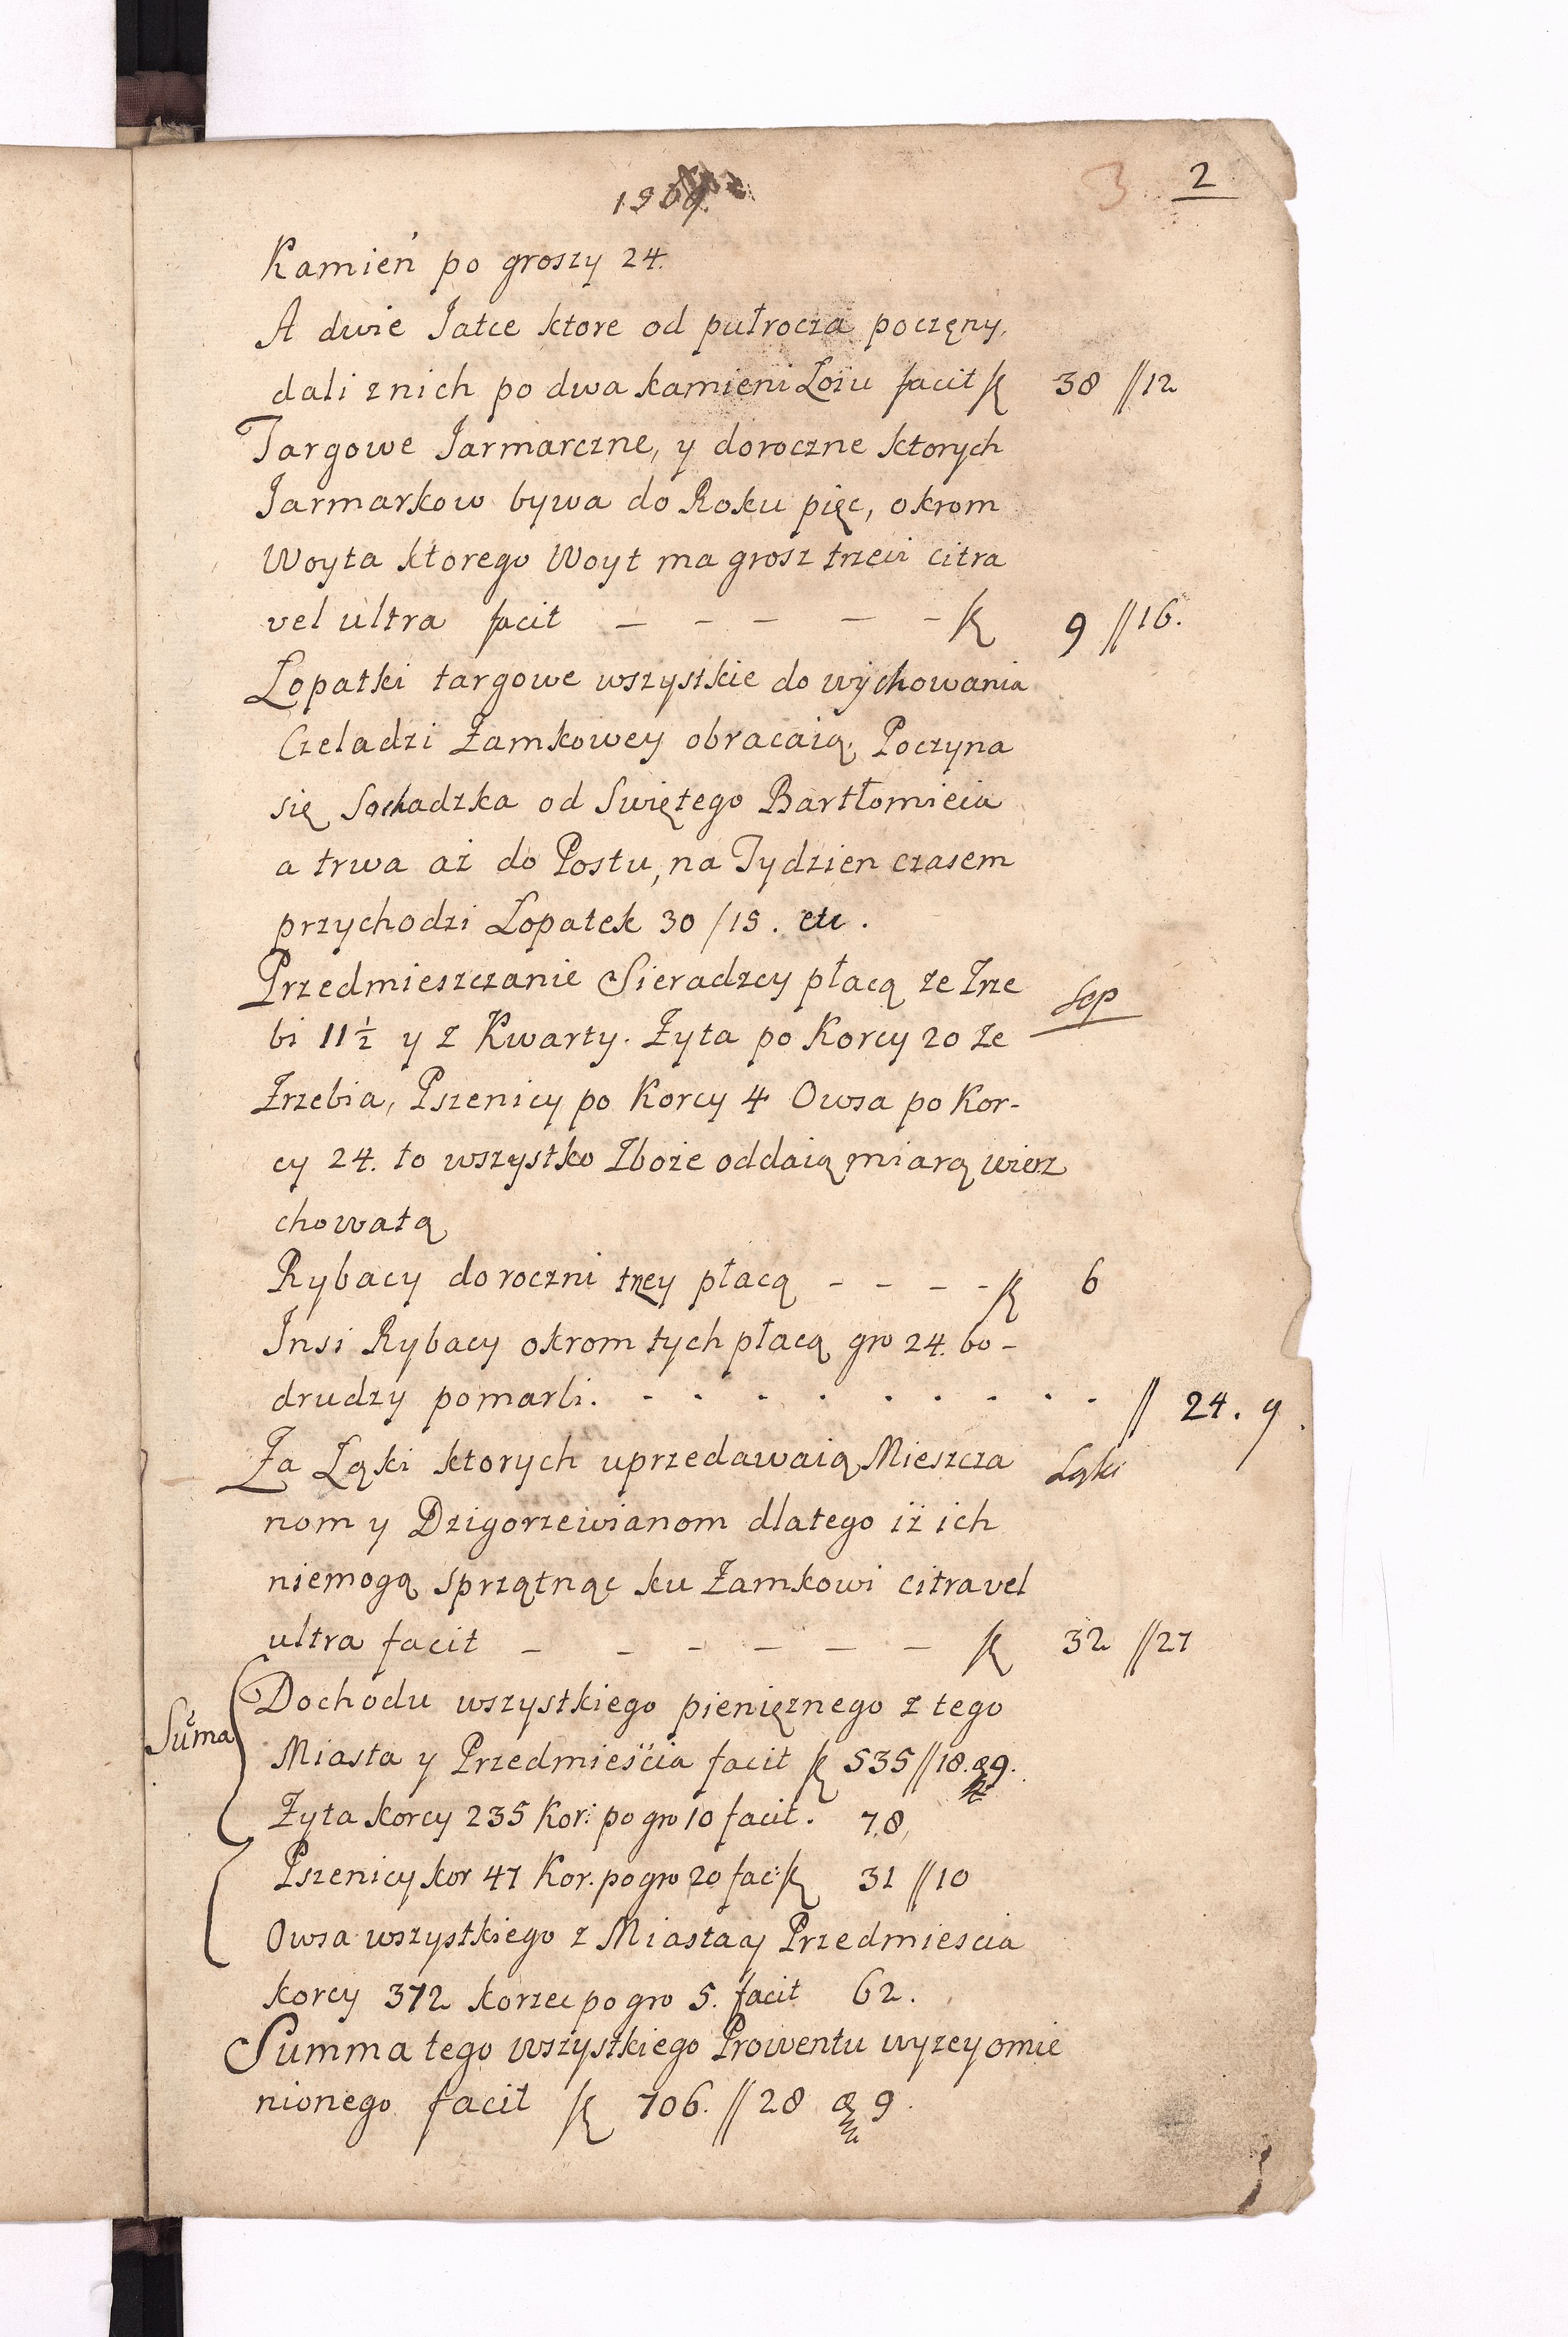 3 2
Kamień po groszy 24.
A dwie Jatce ktore od pułrocza poczęny,
dali z nich po dwa kamieni Łoiu facit f 38 // 12
Targowe Jarmarczne, y doroczne ktorych
Jarmarkow bywa do Roku pięc, okrom
Woyta ktorego Woyt ma grosz trzeci citra
vel ultra facit — — — — — f 9 // 16.
Łopatki targowe wszystkie do wychowania
Czeladzi Zamkowey obracaią. Poczyna
się Sochadzka od Swiętego Bartłomieia
a trwa aż do Postu, na Tydzien czasem
przychodzi Łopatek 30 / 15. etc.
Przedmieszczanie Sieradzcy płacą ze Zrze Sep
bi 11 ½ y z Kwarty. Zyta po Korcy 20 ze
Zrzebia, Pszenicy po Korcy 4 Owsa po Kor-
cy 24. to wszystko Zboże oddaią miarą wierz
chowatą
Rybacy doroczni trzey płacą - - - - f 6
Insi Rybacy okrom tych płacą gro 24. bo-
drudzy pomarli. - - - - - - - - - // 24. 9.
Za Łąki ktorych uprzedawaią Mieszcza Łąki
nom y Dzigorzewianom dlatego iż ich
niemogą sprzątnąc ku Zamkowi citra vel
ultra facit — — — — — — f 32 // 27
Dochodu wszystkiego pienięznego z tego
Sūma Miasta y Przedmieścia facit f 535 // 18. 9.
Zyta korcy 235 Kor: po gro 10 facit. 78,
Pszenicy kor 47 Kor. po gro 20 fac: f 31 // 10
Owsa wszystkiego z Miasta y Przedmiescia
korcy 372 korzec po gro 5. facit 62.
Summa tego wszystkiego Prowentu wyzey omie
nionego facit f 706. // 28 9.